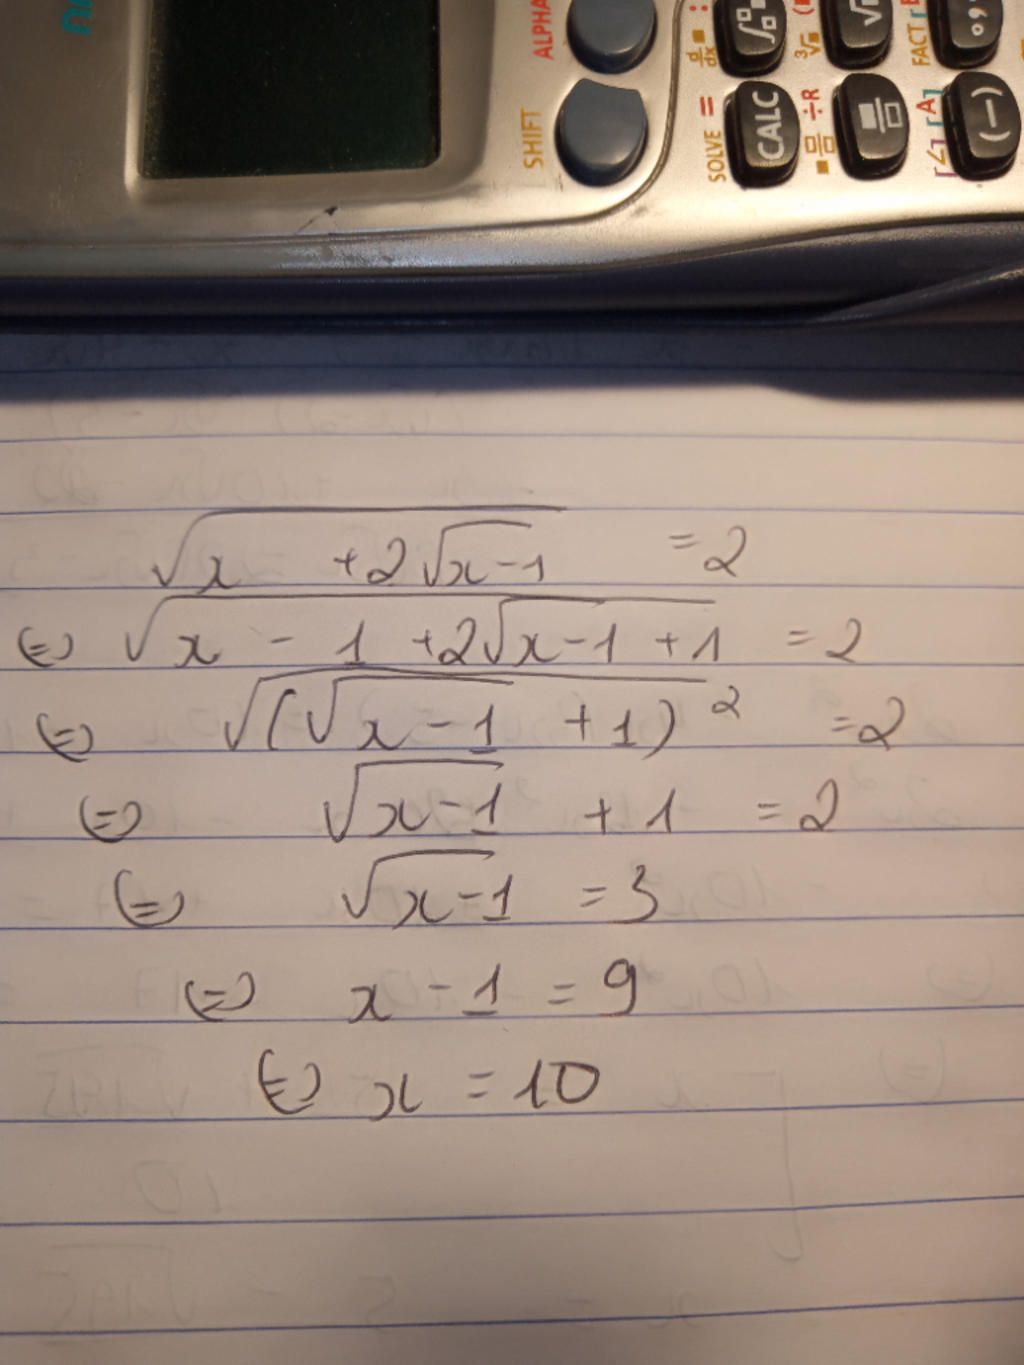 ALPHA
SHIFT
SOLVE =
CALC
d/dx
∫
÷R
³√
√
FACT
[∠] [A]
(−)
√(x + 2√(x-1)) = 2
(=) √(x - 1 + 2√(x-1+1)) = 2
(=) √((√(x-1) + 1)²) = 2
(=) √(x-1) + 1 = 2
(=) √(x-1) = 3
(=) x - 1 = 9
(=) x = 10